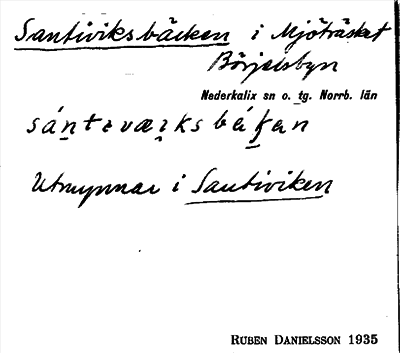 Santiviksbäcken i Mjöträsket
Börjelsbyn
Nederkalix sn o. tg. Norrb. län
sántɩværksbäkan
Utmynnar i Santiviken
RUBEN DANIELSSON 1935